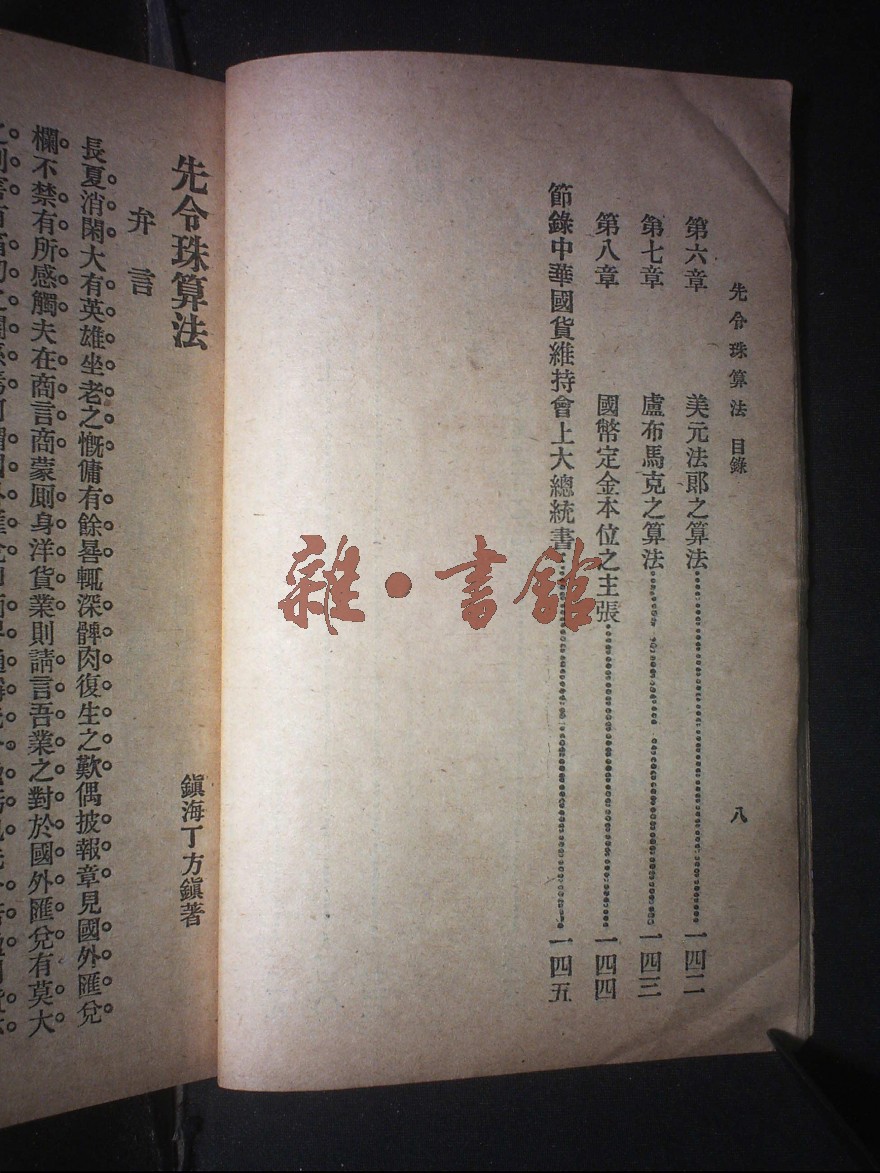 先令珠算法 目錄
八
第六章 美元法郎之算法 一四二
第七章 盧布馬克之算法 一四三
第八章 國幣定金本位之主張 一四四
節錄中華國貨維持會上大總統書 一四五
雜·書館
先令珠算法
鎭海丁方鎭著
弁言
長夏消閑大有英雄坐老之慨傭有餘晷輒深髀肉復生之歎偶披報章見國外匯兌
欄不禁有所感觸夫在商言商蒙厠身洋貨業則請言吾業之對於國外匯兌有莫大